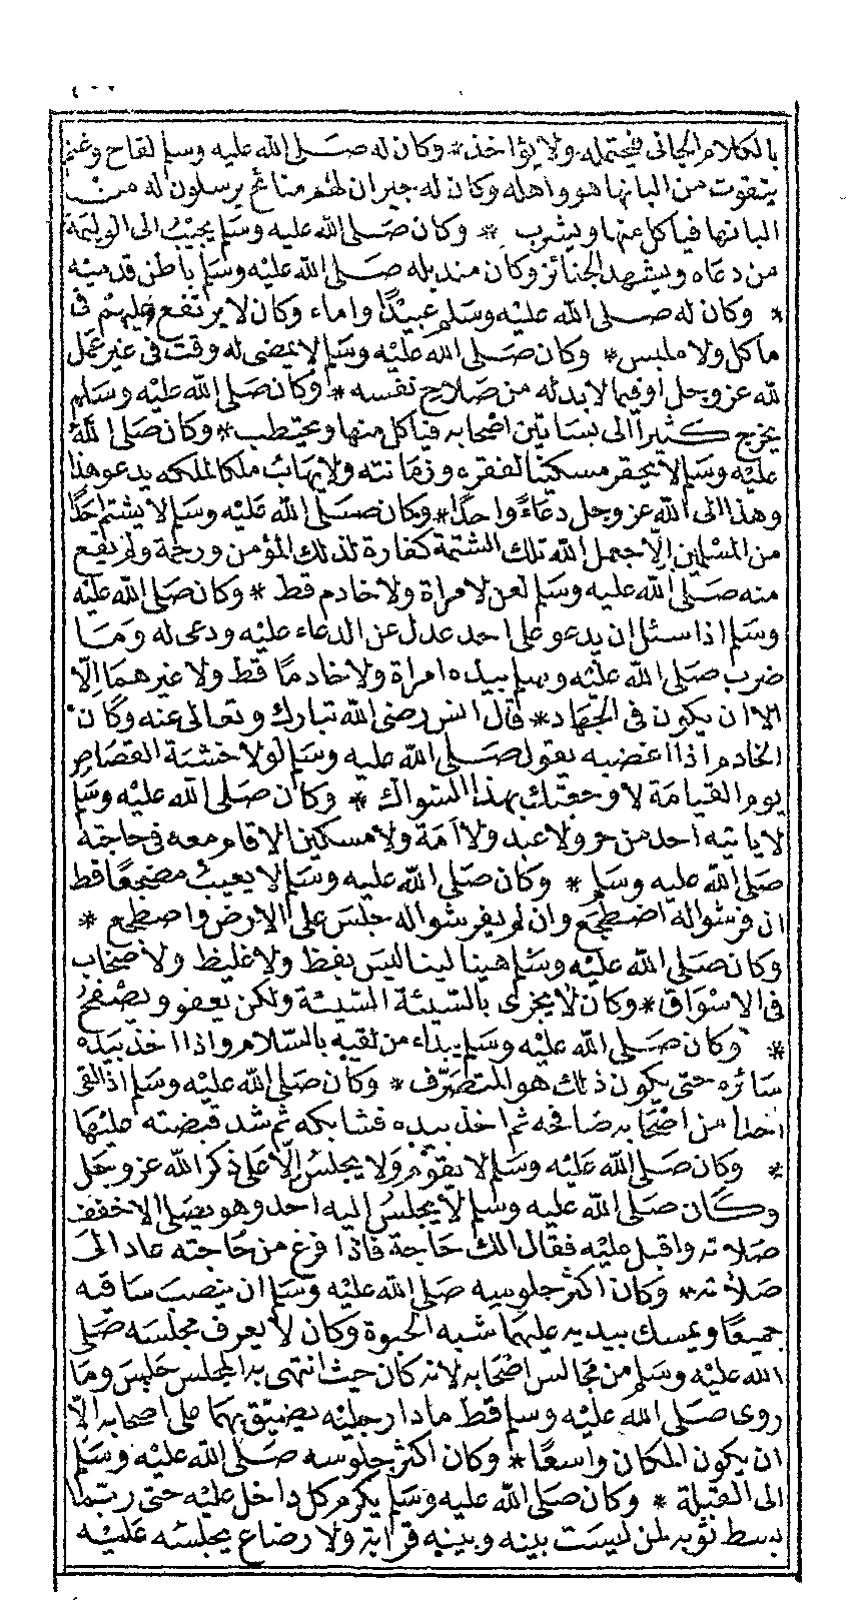 بالكلام الجافى فيحتمله ولا يؤاخذ * وكان له صلى الله عليه وسلم لقاح وغنم
يتقوت من البانها هو واهله وكان له جيران لهم منائح يرسلون له من
البانها فياكل منها ويشرب * وكان صلى الله عليه وسلم يجيب الى الوليمة
من دعاه ويشهد الجنائز وكان منديله صلى الله عليه وسلم باطن قدميه
* وكان له صلى الله عليه وسلم عبيدا واماء وكان لا يرتفع عليهم فى
ماكل ولا ملبس * وكان صلى الله عليه وسلم لا يمضى له وقت فى غير عمل
لله عز وجل او فيما لا بد له من صلاح نفسه * وكان صلى الله عليه وسلم
يخرج كثيرا الى بساتين اصحابه فياكل منها ويحتطب * وكان صلى الله
عليه وسلم لا يحقر مسكينا لفقره وزمانته ولا يهاب ملكا لملكه يدعو هذا
وهذا الى الله عز وجل دعاء واحدا * وكان صلى الله عليه وسلم لا يشتم احدا
من المسلمين الا جعل الله تلك الشتمة كفارة لذلك المؤمن ورحمة ولم يقع
منه صلى الله عليه وسلم لعن لامراة ولا خادم قط * وكان صلى الله عليه
وسلم اذا سئل ان يدعو على احد عدل عن الدعاء عليه ودعى له وما
ضرب صلى الله عليه وسلم بيده امراة ولا خادما قط ولا غيرهما الا
الا ان يكون فى الجهاد * قال انس رضى الله تبارك وتعالى عنه وكان
الخادم اذا اغضبه يقول صلى الله عليه وسلم لولا خشية القصاص
يوم القيامة لاوجعتك بهذا السواك * وكان صلى الله عليه وسلم
لا ياتيه احد من حر ولا عبد ولا امة ولا مسكين الا قام معه فى حاجته
صلى الله عليه وسلم * وكان صلى الله عليه وسلم لا يعيب مضجعا قط
ان فرشوا له اضطجع وان لم يفرشوا له جلس على الارض واضطجع *
وكان صلى الله عليه وسلم هينا لينا ليس بفظ ولا غليظ ولا صخاب
فى الاسواق * وكان لا يجزى بالسيئة السيئة ولكن يعفو ويصفح
* وكان صلى الله عليه وسلم يبداء من لقيه بالسلام واذا اخذ بيده
سائره حتى يكون ذلك هو المتصرف * وكان صلى الله عليه وسلم اذا لقى
احدا من اصحابه صافحه ثم اخذ بيده فشابكه ثم شد قبضته عليها
* وكان صلى الله عليه وسلم لا يقوم ولا يجلس الا على ذكر الله عز وجل
وكان صلى الله عليه وسلم لا يجلس اليه احد وهو يصلى الا خفف
صلاته واقبل عليه فقال الك حاجة فاذا فرغ من حاجته عاد الى
صلاته * وكان اكثر جلوسه صلى الله عليه وسلم ان ينصب ساقيه
جميعا ويمسك بيديه عليهما شبه الحبوة وكان لا يعرف مجلسه صلى
الله عليه وسلم من مجالس اصحابه لانه كان حيث انتهى به المجلس جلس وما
روى صلى الله عليه وسلم قط مادا رجليه يضيق بهما على اصحابه الا
ان يكون المكان واسعا * وكان اكثر جلوسه صلى الله عليه وسلم
الى القبلة * وكان صلى الله عليه وسلم يكرم كل داخل عليه حتى ربما
بسط ثوبه لمن ليست بينه وبينه قرابة ولا رضاع يجلسه عليه